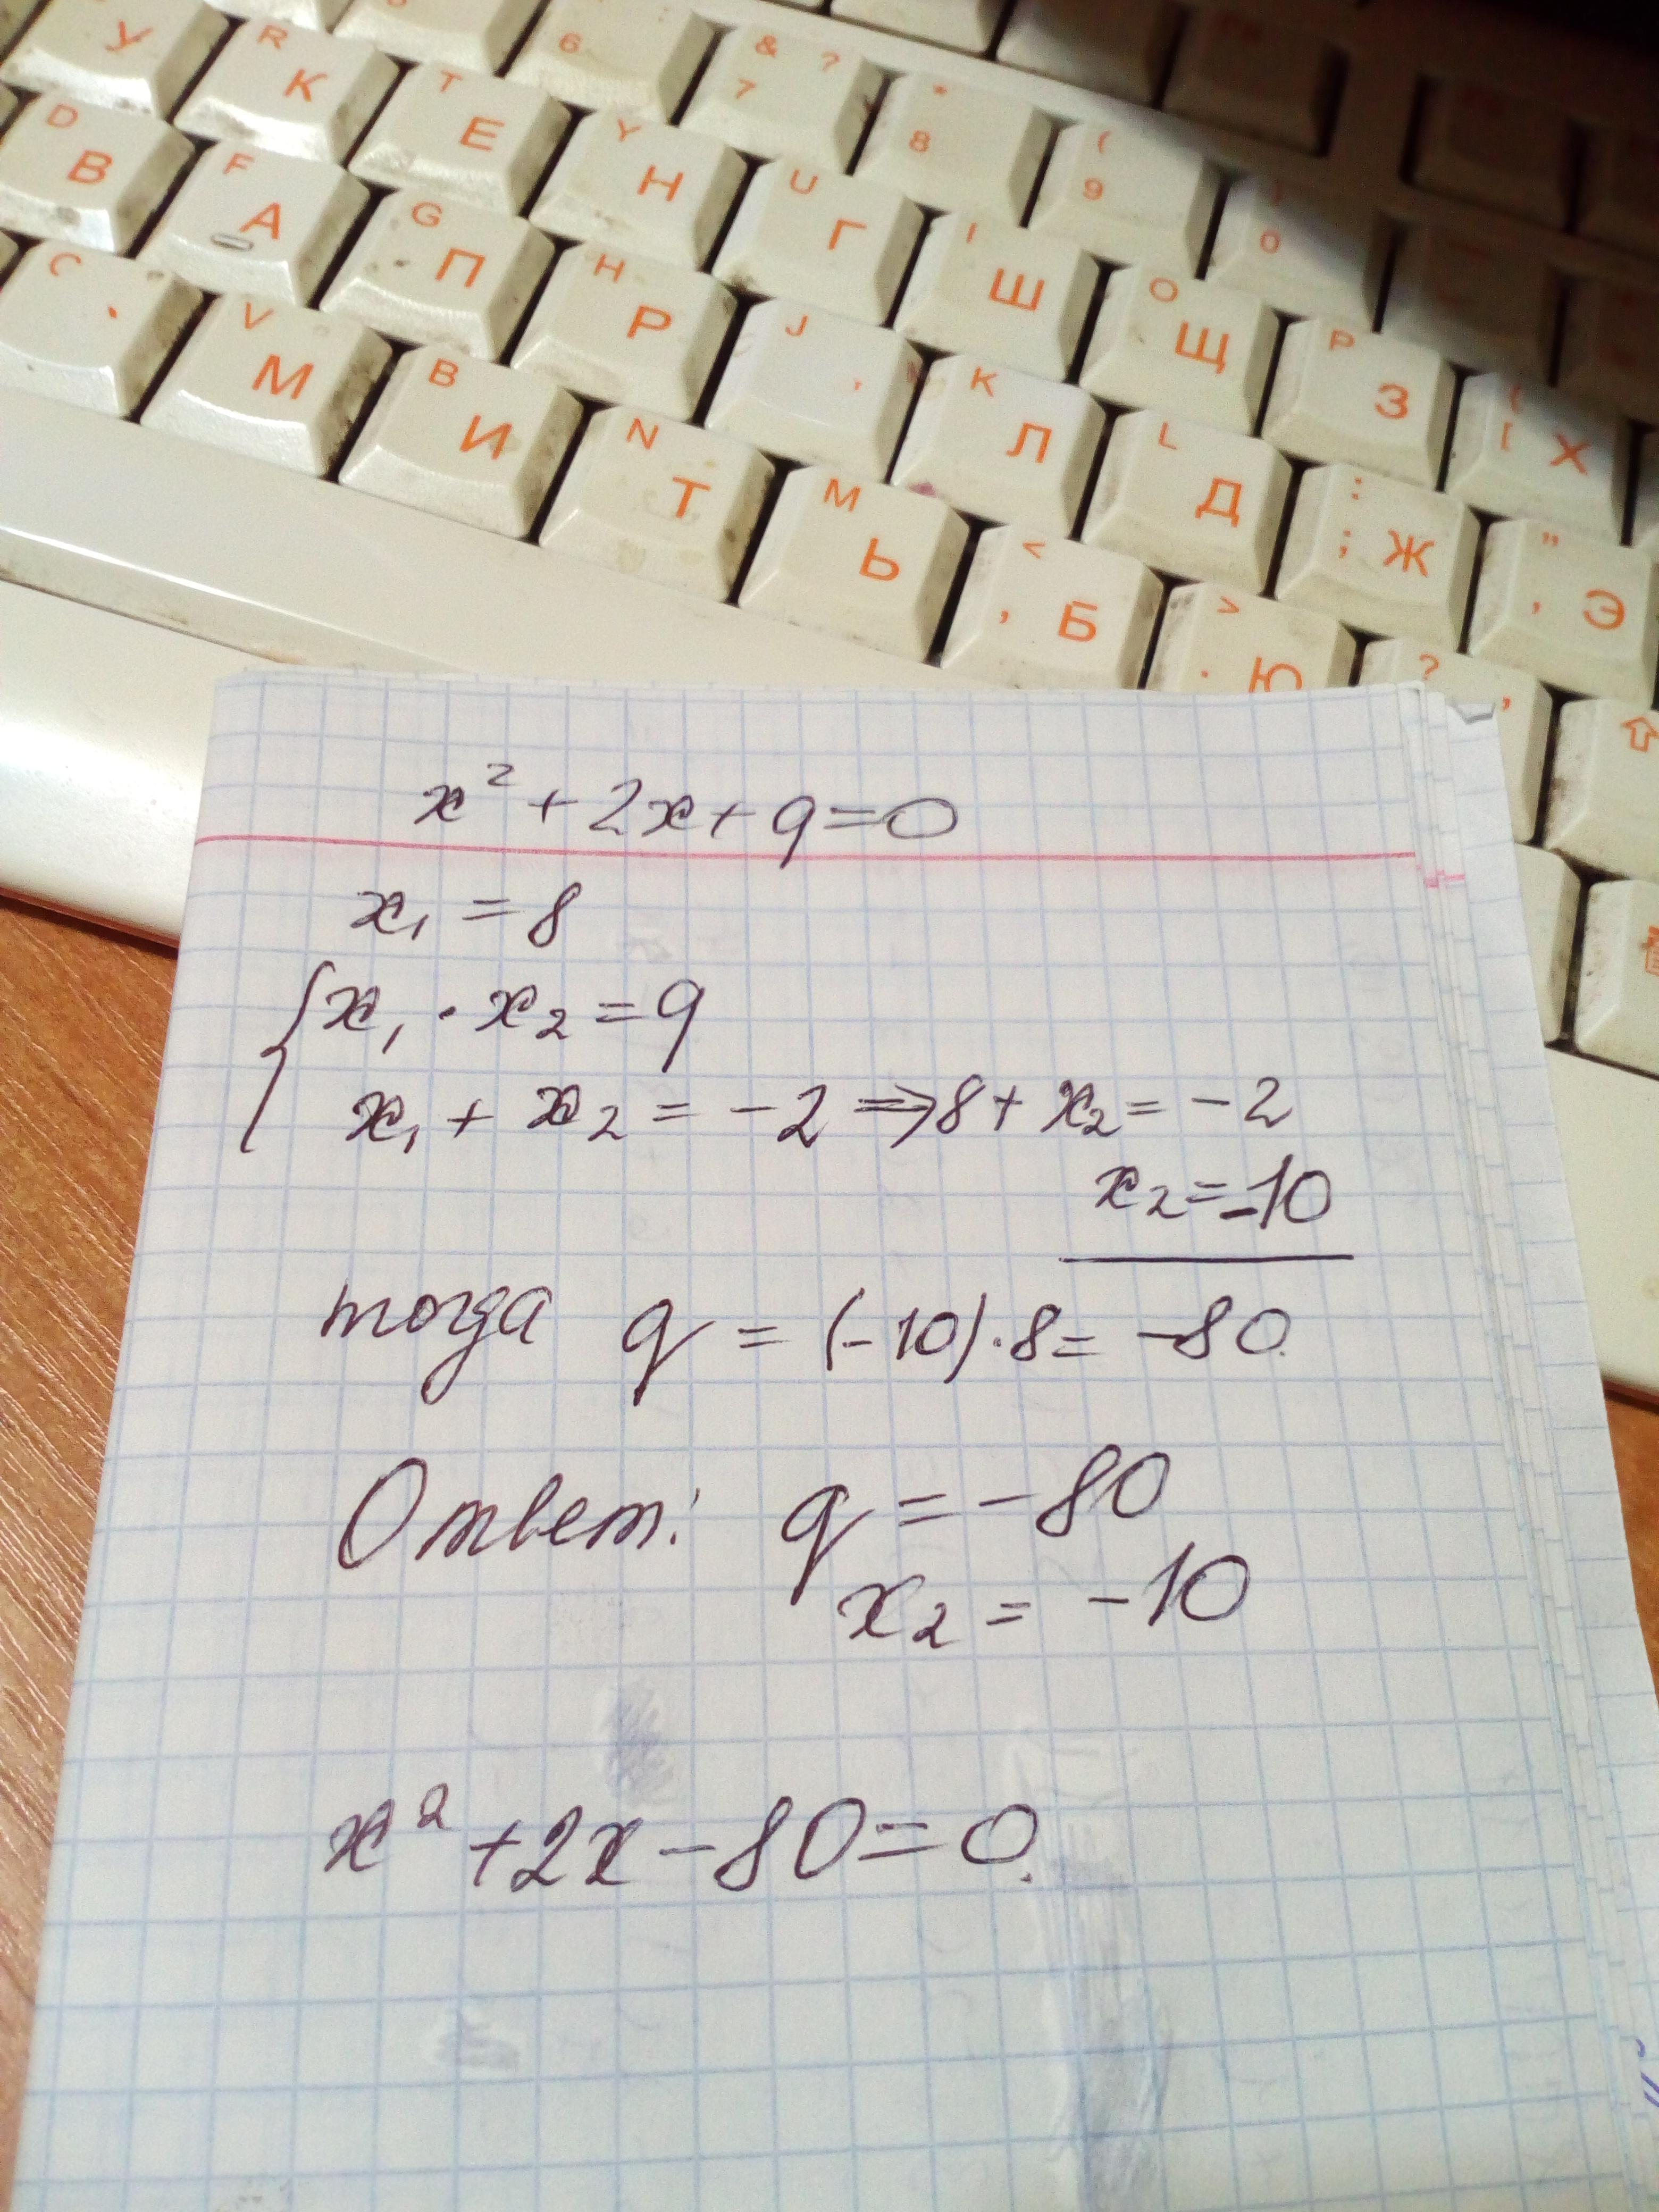 У R К T Е 6 & 7 ? * 8 ( 9 ) 0
D В F А G П Y Н U Г I Ш O Щ P З [ Х
C V М B И H Р J K Л L Д : ; Ж " Э
N Т M Ь < , Б > . Ю ? ,
x² + 2x + q = 0
x₁ = 8
x₁ · x₂ = q
x₁ + x₂ = -2 ⇒ 8 + x₂ = -2
x₂ = -10
тогда q = (-10) · 8 = -80.
Ответ: q = -80
x₂ = -10
x² + 2x - 80 = 0.